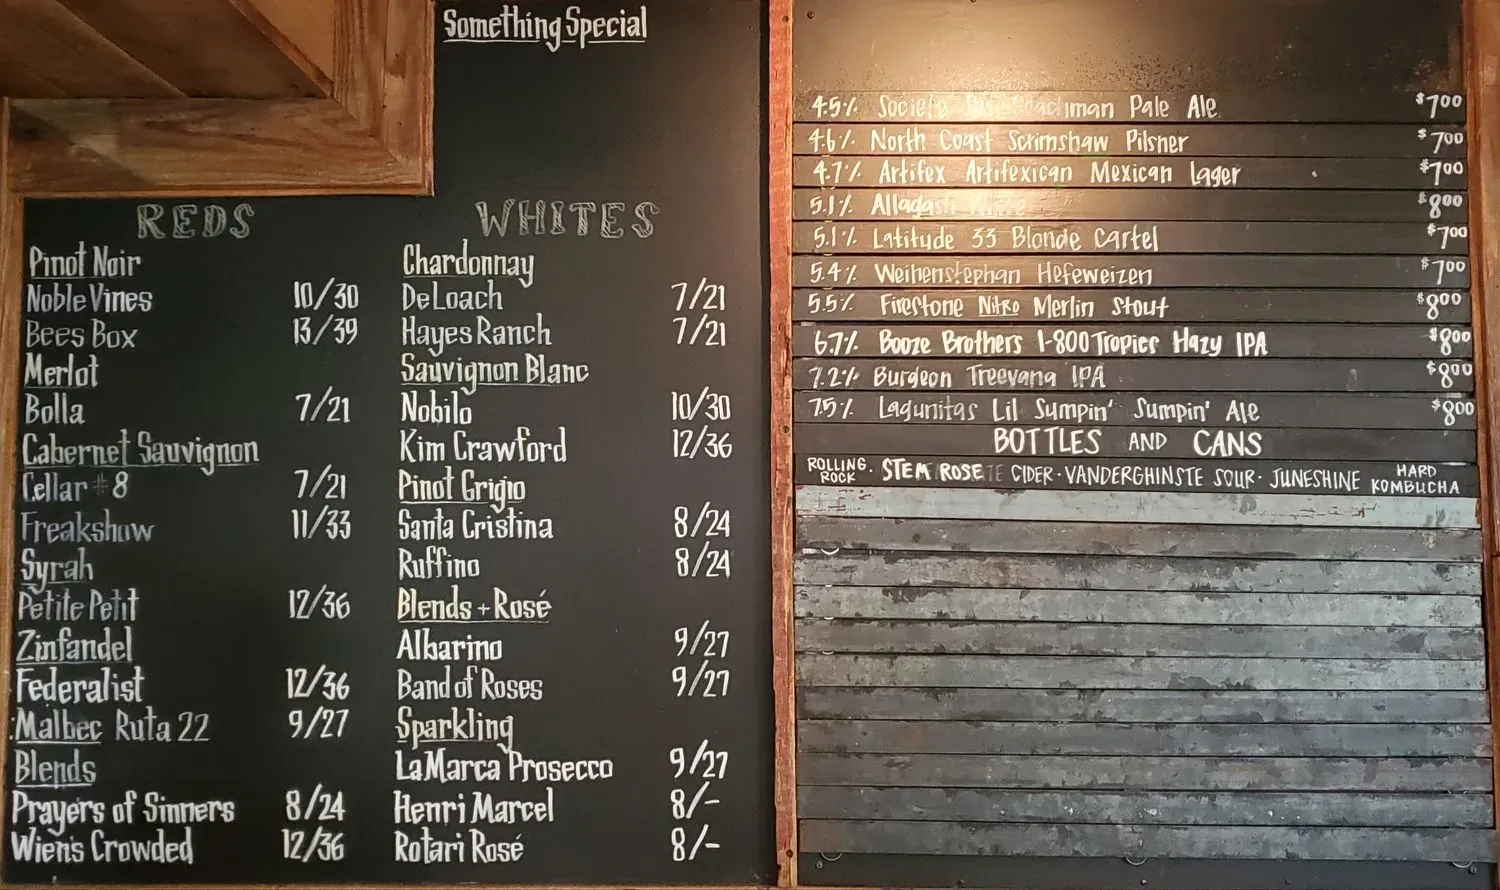 Something Special
REDS
Pinot Noir
Noble Vines 10/30
Bees Box 13/39
Merlot
Bolla 7/21
Cabernet Sauvignon
Cellar #8 7/21
Freakshow 11/33
Syrah
Petite Petit 12/36
Zinfandel
Federalist 12/36
Malbec Ruta 22 9/27
Blends
Prayers of Sinners 8/24
Wiens Crowded 12/36
WHITES
Chardonnay
DeLoach 7/21
Hayes Ranch 7/21
Sauvignon Blanc
Nobilo 10/30
Kim Crawford 12/36
Pinot Grigio
Santa Cristina 8/24
Ruffino 8/24
Blends + Rosé
Albarino 9/27
Band of Roses 9/27
Sparkling
LaMarca Prosecco 9/27
Henri Marcel 8/-
Rotari Rosé 8/-
4.5% Societe Coachman Pale Ale $7.00
4.6% North Coast Scrimshaw Pilsner $7.00
4.7% Artifex Artifexican Mexican Lager $7.00
5.1% Alladash $8.00
5.1% Latitude 33 Blonde Cartel $7.00
5.4% Weihenstephan Hefeweizen $7.00
5.5% Firestone Nitro Merlin Stout $8.00
6.7% Booze Brothers 1-800 Tropics Hazy IPA $8.00
7.2% Burgeon Treevana IPA $8.00
7.5% Lagunitas Lil Sumpin' Sumpin' Ale $8.00
BOTTLES AND CANS
ROLLING ROCK · STEM ROSE CIDER · VANDERGHINSTE SOUR · JUNESHINE HARD KOMBUCHA